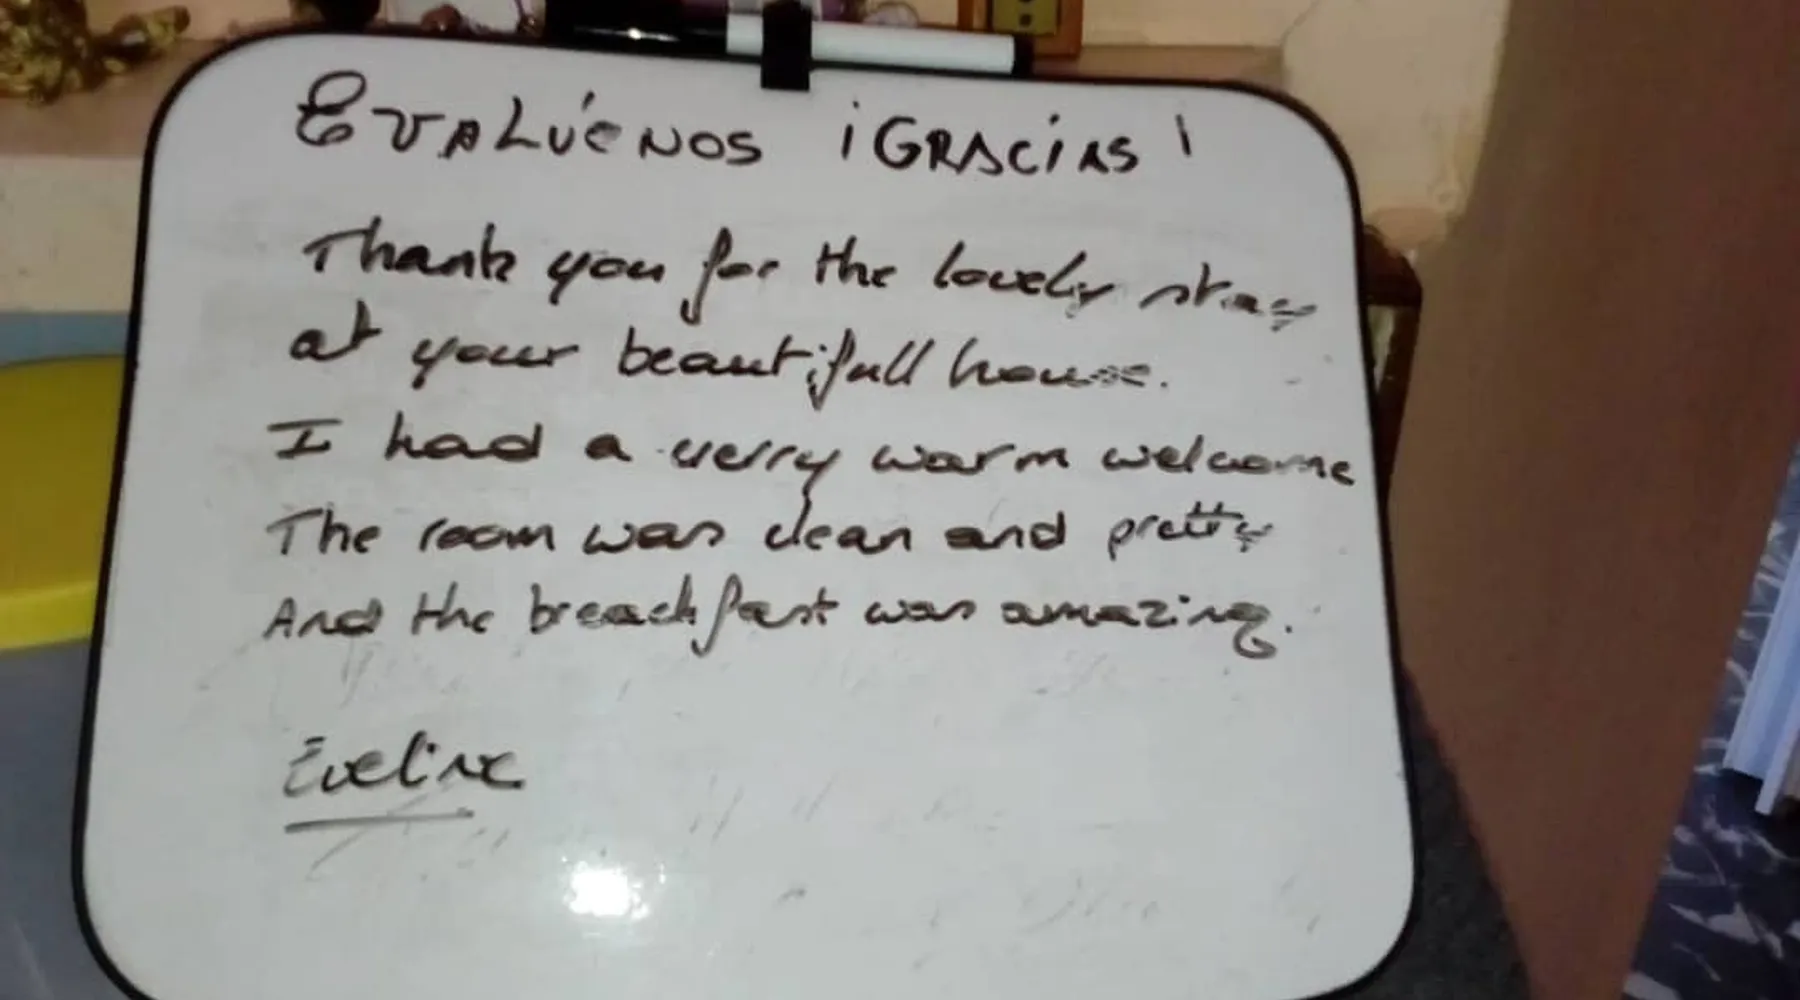 EVALÚENOS ¡GRACIAS!
Thank you for the lovely stay
at your beautifull house.
I had a verry warm welcome
The room was clean and pretty
And the breackfast was amazing.
Eveline